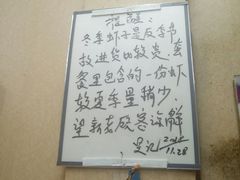 提醒:
冬季虾子是反季节
故进货比较贵,套
餐里包含的一份虾
较夏季量稍少.
望新老顾客谅解
11.28